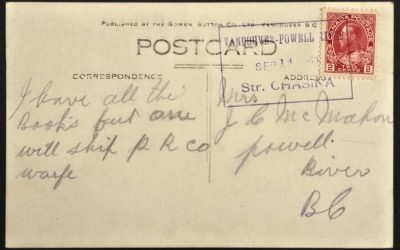 PUBLISHED BY THE GOWEN SUTTON CO. LTD. VANCOUVER B.C.
POSTCARD
CORRESPONDENCE
ADDRESS
VANCOUVER-POWELL RI
SEP 14
Str. CHASINA
CANADA POSTAGE
2 CENTS 2
I have all the
Books but one
will ship P R Co
warfe
Mrs
J C McMahon
Powell
River
BC